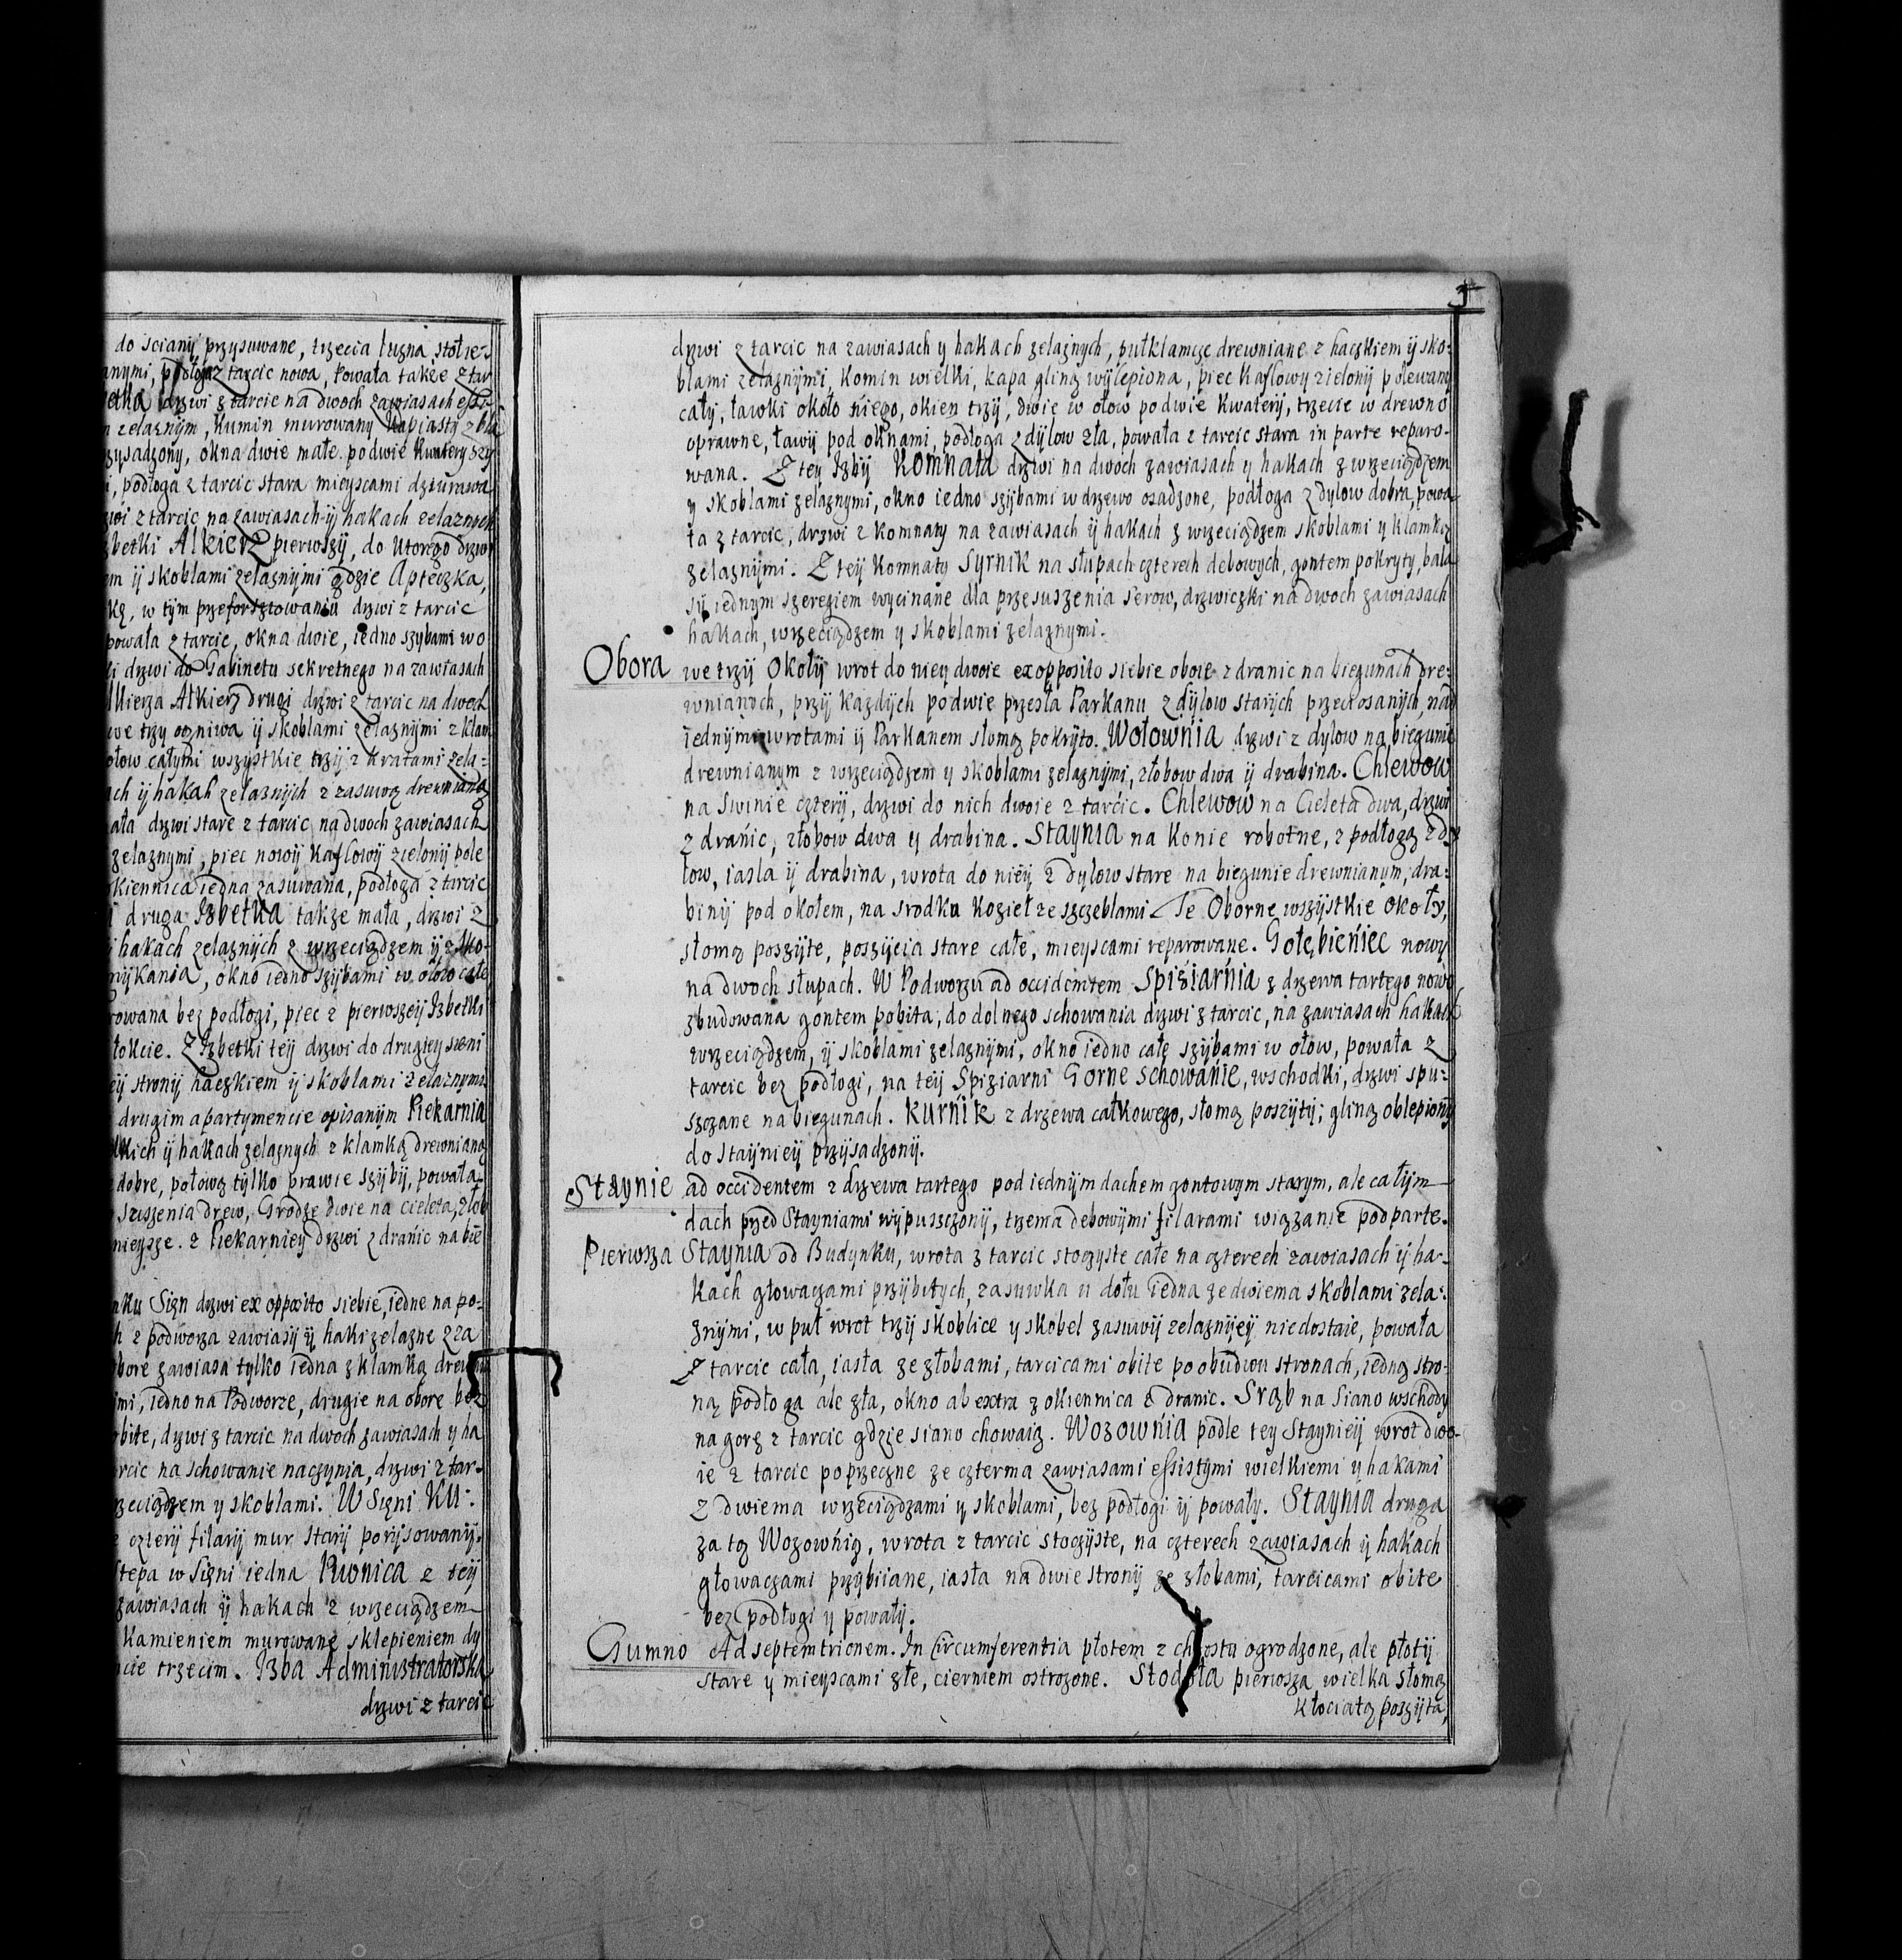 do scianÿ przysuwane, trzecia luzna stołe
anymi, podłoga z tarcic nowa, powała takze z tar
drzwi z tarcic na dwoch zawiasach essi
zelaznÿm, kumin murowanÿ kapiastÿ z bla
zysadzonÿ, okna dwie małe podwie kwaterÿ szÿ
i, podłoga z tarcic stara mieyscami dziurawa
zwi z tarcic na zawiasach ÿ hakach zelaznÿch
zbetki Alkierz pierwszÿ, do ktorego drzwi
em ÿ skoblami zelaznÿmi gdzie Apteczka,
ką, w tÿm przeforsztowaniu drzwi z tarcic
powała z tarcic, okna dwie, iedno szybami w o
i drzwi do Gabinetu sekretnego na zawiasach
lkierza Alkierz drugi drzwi z tarcic na dwoch
we trzy ogniwa ÿ skoblami zelaznÿmi z klam
ołow całymi wszÿstkie trzÿ z kratami zela:
ach ÿ hakah zelaznÿch z zasuwą drewnianą
ała drzwi stare z tarcic na dwoch zawiasach
zelaznymi, piec nowÿ kaflowÿ zielonÿ pole
kiennica iedna zasuwana, podłoga z tarcic
druga Izbetka takze mała, drzwi z
hakach zelaznÿch z wrzeciądzem ÿ z sko-
mÿkania, okno iedno szÿbami w ołow całe
rowana bez podłogi, piec z pierwszeÿ Izbetki
łokcie. Z Izbetki teÿ drzwi do drugiey sieni
eÿ stronÿ haczkiem ÿ skoblami zelaznymi
drugim apartymencie opisanÿm Piekarnia
lkich ÿ hakach zelaznych z klamką drewnianą
dobre, połowa tÿlko prawie szÿbÿ, powała
szuszenia drew, Grodze dwie na cieleta, złob
nieysze. z Piekarniey drzwi z dranic na bie
nku Sien drzwi ex opposito siebie, iedne na po-
h z podworza zawiasÿ ÿ haki zelazne z za
obore zawiasa tylko iedna z klamką drewn
mi, iedno na Podworze, drugie na obore bez
obite, drzwi z tarcic na dwoch zawiasach y ha
arcic na schowanie naczynia, drzwi z tar-
zeciądzem y skoblami. W Sieni Ku:
czterÿ filarÿ mur starÿ porÿsowanÿ,
stepa w Sieni iedna Piwnica z teÿ
zawiasach ÿ hakach z wrzeciądzem
kamieniem murowane sklepieniem dy
cie trzecim. Izba Administratorska
drzwi z tarcic
3
drzwi z tarcic na zawiasach y hakach zelaznych, pułklamcze drewniane z haczkiem ÿ sko:
blami zelaznÿmi, komin wielki, kapa gliną wÿlepiona, piec kaflowy zielonÿ polewanÿ
całÿ, ławki około niego, okien trzÿ, dwie w ołow podwie kwaterÿ, trzecie w drewno
oprawne, ławÿ pod oknami, podłoga z dÿlow zła, powała z tarcic stara in parte reparo-
wana. Z teÿ Izbÿ Komnata drzwi na dwoch zawiasach y hakach z wrzeciądzem
y skoblami zelaznymi, okno iedno szÿbami w drzewo osadzone, podłoga z dylow dobra, powa
ła z tarcic, drzwi z komnaty na zawiasach ÿ hakach z wrzeciądzem skoblami y klamką
zelaznÿmi. Z teÿ Komnaty Syrnik na słupach czterech debowych, gontem pokryty, bala
sÿ iednym szeregiem wycinane dla przesuszenia serow, drzwiczki na dwoch zawiasach
hakach, wrzeciądzem y skoblami zelaznymi.
Obora we trzÿ Okołÿ wrot do niey dwoie ex opposito siebie oboie z dranic na biegunach dre:
wnianych, przÿ kazdÿch podwie przesła Parkanu z dÿlow starÿch przeciosanÿch, nad
iednÿmi wrotami ÿ Parkanem słomą pokrÿto. Wołownia drzwi z dylow na biegunie
drewnianym z wrzeciądzem y skoblami zelaznÿmi, złobow dwa ÿ drabina. Chlewow
na Swinie czterÿ, drzwi do nich dwoie z tarcic. Chlewow na Cieleta dwa, drzwi
z dranic, złobow dwa y drabina. Staynia na konie robotne, z podłogą z dy
łow, iasla ÿ drabina, wrota do nieÿ z dylow stare na biegunie drewnianym, dra:
binÿ pod okołem, na srodku koziel ze szczeblami. Te Oborne wszÿstkie okoły,
słomą poszÿte, poszÿcia stare całe, mieyscami reparowane. Gołębieniec nowy
na dwoch słupach. W Podworzu ad occidentem Spiżiarnia z drzewa tartego nowo
zbudowana gontem pobita, do dolnego schowania drzwi z tarcic, na zawiasach hakach
wrzeciądzem, ÿ skoblami zelaznymi, okno iedno całe szÿbami w ołow, powała z
tarcic bez podłogi, na teÿ Spiziarni Gorne schowanie, wschodki, drzwi spu:
szczane na biegunach. Kurnik z drzewa całkowego, słomą poszÿtÿ; gliną oblepionÿ
do Staÿnieÿ przÿsadzonÿ.
Staynie ad occidentem z drzewa tartego pod iednÿm dachem gontowym starym, ale całÿm
dach przed Stayniami wÿpuszczonÿ, trzema debowÿmi filarami wiązanie podparte.
Pierwsza Staynia od Budynku, wrota z tarcic stoczyste całe na czterech zawiasach ÿ ha-
kach głowaczami przÿbitych, zasuwka u dołu iedna ze dwiema skoblami zela:
znÿmi, w puł wrot trzÿ skoblice y skobel zasuwÿ zelaznÿeÿ niedostaie, powała
z tarcic cała, iasła ze złobami, tarcicami obite po obudwu stronach, iedną stro-
ną podłoga ale zła, okno ab extra z okiennica z dranic. Srąb na Siano wschody
na gorę z tarcic gdzie siano chowaią. Wozownia podle tey Staynieÿ wrot dwo-
ie z tarcic poprzeczne ze czterma zawiasami essistymi wielkiemi y hakami
z dwiema wrzeciądzami y skoblami, bez podłogi ÿ powały. Staynia druga
za tą Wozownią, wrota z tarcic stoczÿste, na czterech zawiasach ÿ hakach
głowaczami przÿbiiane, iasła na dwie stronÿ ze złobami, tarcicami obite
bez podłogi y powałÿ.
Gumno Ad septemtrionem. In Circumferentia płotem z chrostu ogrodzone, ale płotÿ
stare y mieyscami złe, cierniem ostrozone. Stodoła pierwsza wielka słomą
kłociatą poszÿta,